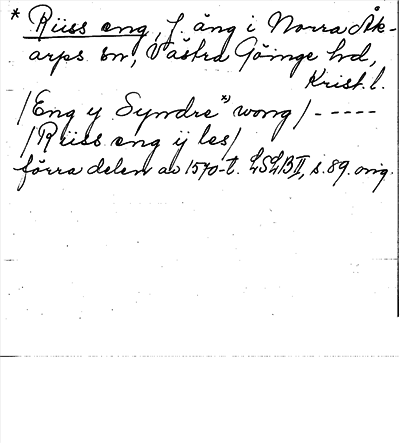 * Riiss eng, f. äng i Norra Åk-
arps sn, Västra Göinge hd,
Krist. l.
/Eng y Syndre *) wong/ - - - - -
/Riiss eng ij les/
förra delen av 1570-t. LSLB II, s. 89. orig.